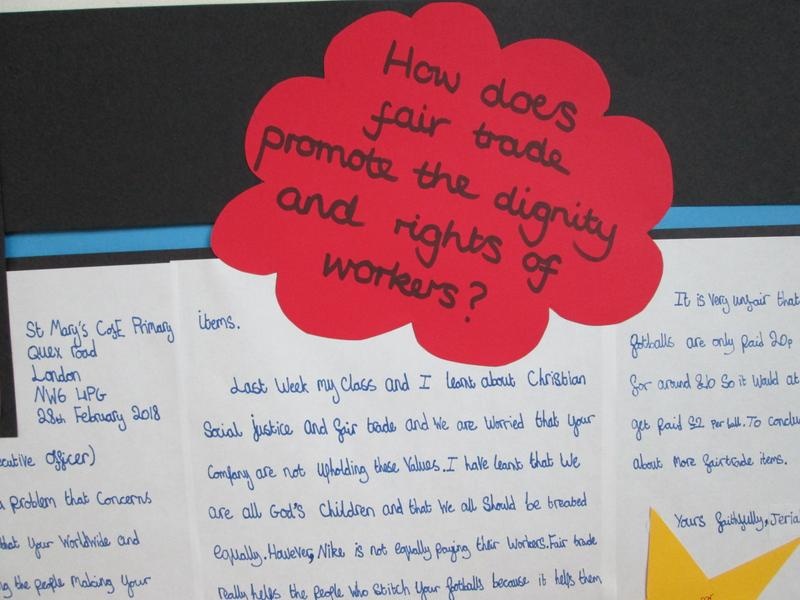 How does
fair trade
promote the dignity
and rights of
workers?
St Mary's CofE Primary
Quex road
London
NW6 4PG
28th February 2018
ecutive officer)
a problem that Concerns
that your Worldwide and
ng the people Making your
items.
Last Week my Class and I learnt about Christian
Social justice and fair trade and We are Worried that your
Company are not Upholding these Values. I have leant that We
are all God's Children and that We all Should be treated
equally. However, Nike is not equally paying their Workers. Fair trade
really helps the people who stitch your footballs because it helps them
It is Very unfair that
footballs are only paid 20p
for around £10 So it Would
get paid £2 Per ball. To conclu
about More fairtrade items.
Yours faithfully, Jeria